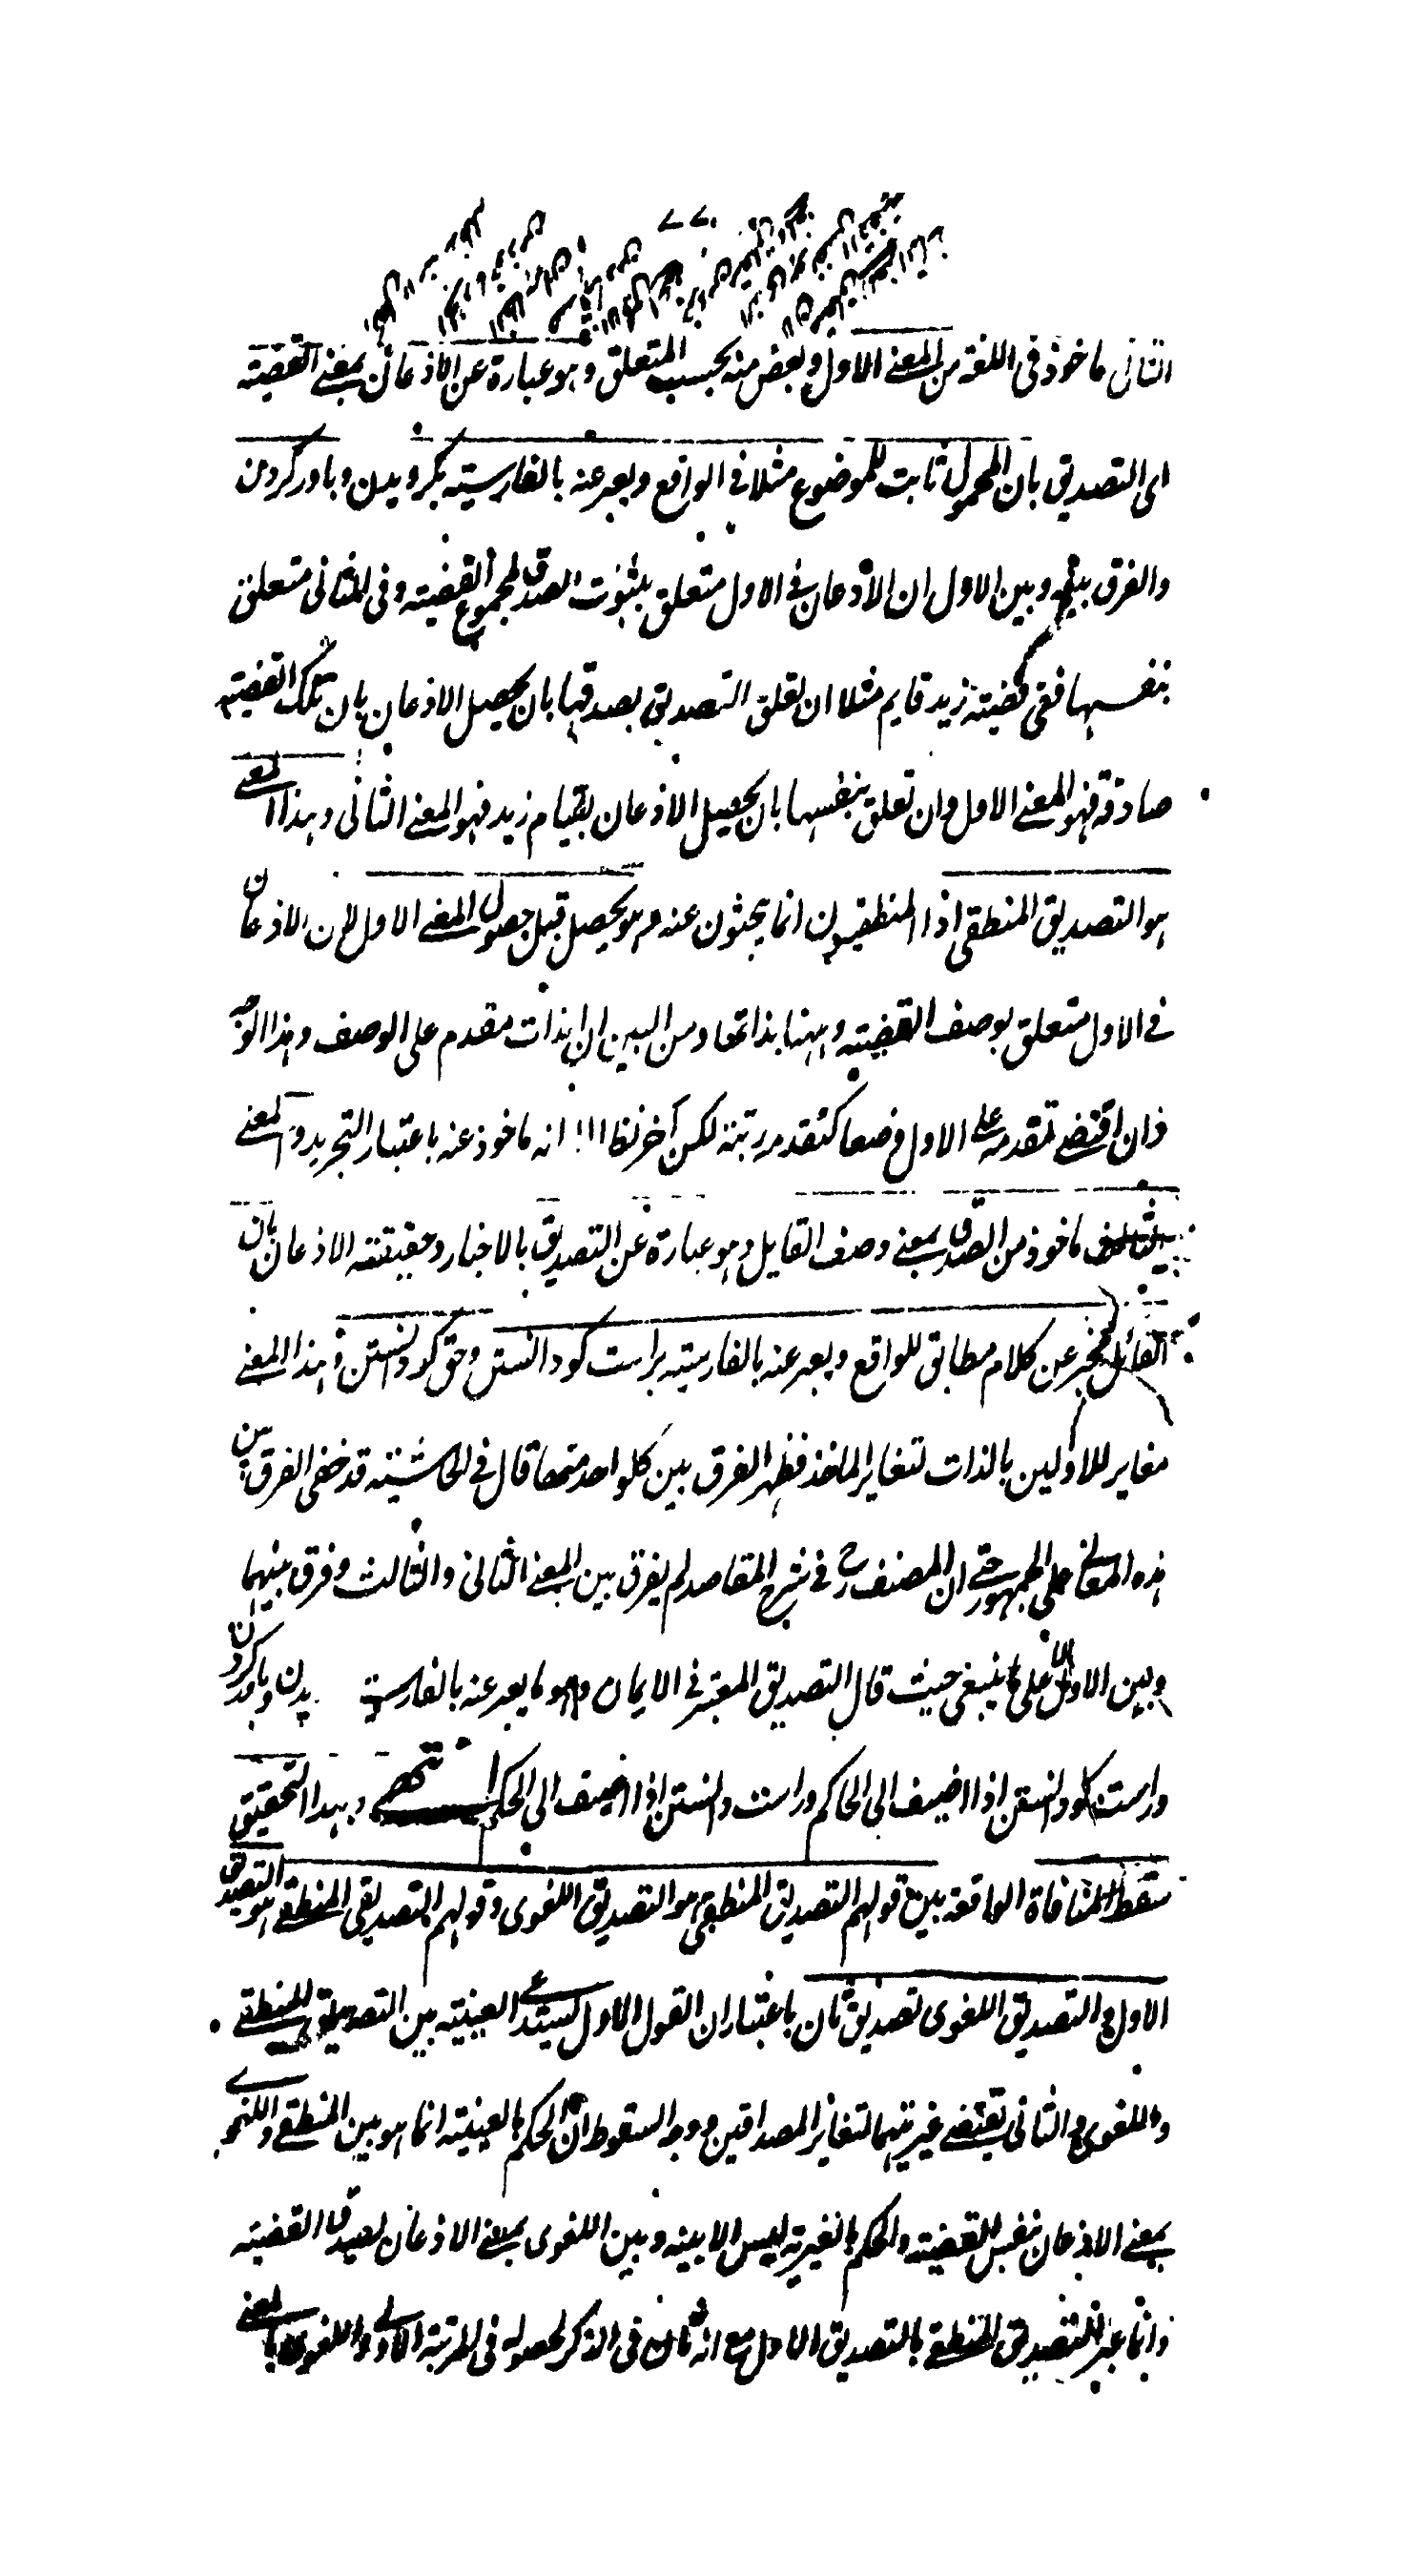 الثانی ماخوذ فی اللغة من المعنے الاول وبعض منه بحسب المتعلق وهو عبارة عن الاذعان بمعنے القضیته
ای التصدیق بان المحمول ثابت للموضوع مثلا فی الواقع ویعبر عنه بالفارسیته بگرویدن وباور کردن
والفرق بینه وبین الاول ان الاذعان فے الاول متعلق بثبوت الصدق لمجموع القضیته وفی الثانی متعلق
بنفسها ففی قضیته زید قایم مثلا ان تعلق التصدیق بصدقها بان یحصل الاذعان بان تلک القضیته
صادقة فهو المعنے الاول وان تعلق بنفسها بان یحصل الاذعان بقیام زید فهو المعنے الثانی وهذا المعنے
هو التصدیق المنطقی اذ المنطقیون انما یبحثون عنه وهو یحصل قبل حصول المعنے الاول لان الاذعان
فے الاول متعلق بوصف القضیته وههنا بذاتها ومن البین ان الذات مقدم علی الوصف وهذا الوجه
وان اقتضے تقدمه علے الاول وضعا کتقدم رتبة لکن أخر نظرا الی انه ماخوذ عنه باعتبار التجرید والمعنے
الثالث ماخوذ من الصدق بمعنے وصف القایل وهو عبارة عن التصدیق بالاخبار وحقیقته الاذعان بان
القائل مخبر عن کلام مطابق للواقع ویعبر عنه بالفارسیته براست گو دانستن وحق گو دانستن وهذا المعنے
مغایر للاولین بالذات لتغایر الماخذ فظهر الفرق بین کلواحد منها قال فے الحاشیته قد خفی الفرق بین
هذه المعانے علی الجمهور حتے ان المصنف رح فی شرح المقاصد لم یفرق بین المعنے الثانی والثالث وفرق بینهما
وبین الاول لا علی ما ینبغی حیث قال التصدیق المعتبر فے الایمان وهو ما یعبر عنه بالفارسیة یدن وباور کردن
وراست گو دانستن اذا اضیف الی الحاکم وراست دانستن اذا اضیف الی الحکم انتهے وبهذا التحقیق
سقط المنافاة الواقعة بین قولهم التصدیق المنطقی هو التصدیق اللغوی وقولهم التصدیق المنطقے هو التصدیق
الاول والتصدیق اللغوی تصدیق ثان باعتبار ان القول الاول یستدعے العینیة بین التصدیق المنطقے
واللغوی والثانی یقتضے غیریتهما لتغایر المصداقین ووجه السقوط ان الحکم بالعینیته انما هو بین المنطقے واللغوے
بمعنے الاذعان بنفس القضیته والحکم بالغیریة لیس الا بینه وبین اللغوی بمعنے الاذعان لصدق القضیته
وانما عبر التصدیق المنطقے بالتصدیق الاول مع انه ثان فی الذکر لحصوله فی المرتبة الاولے واللغوی بالمعنے